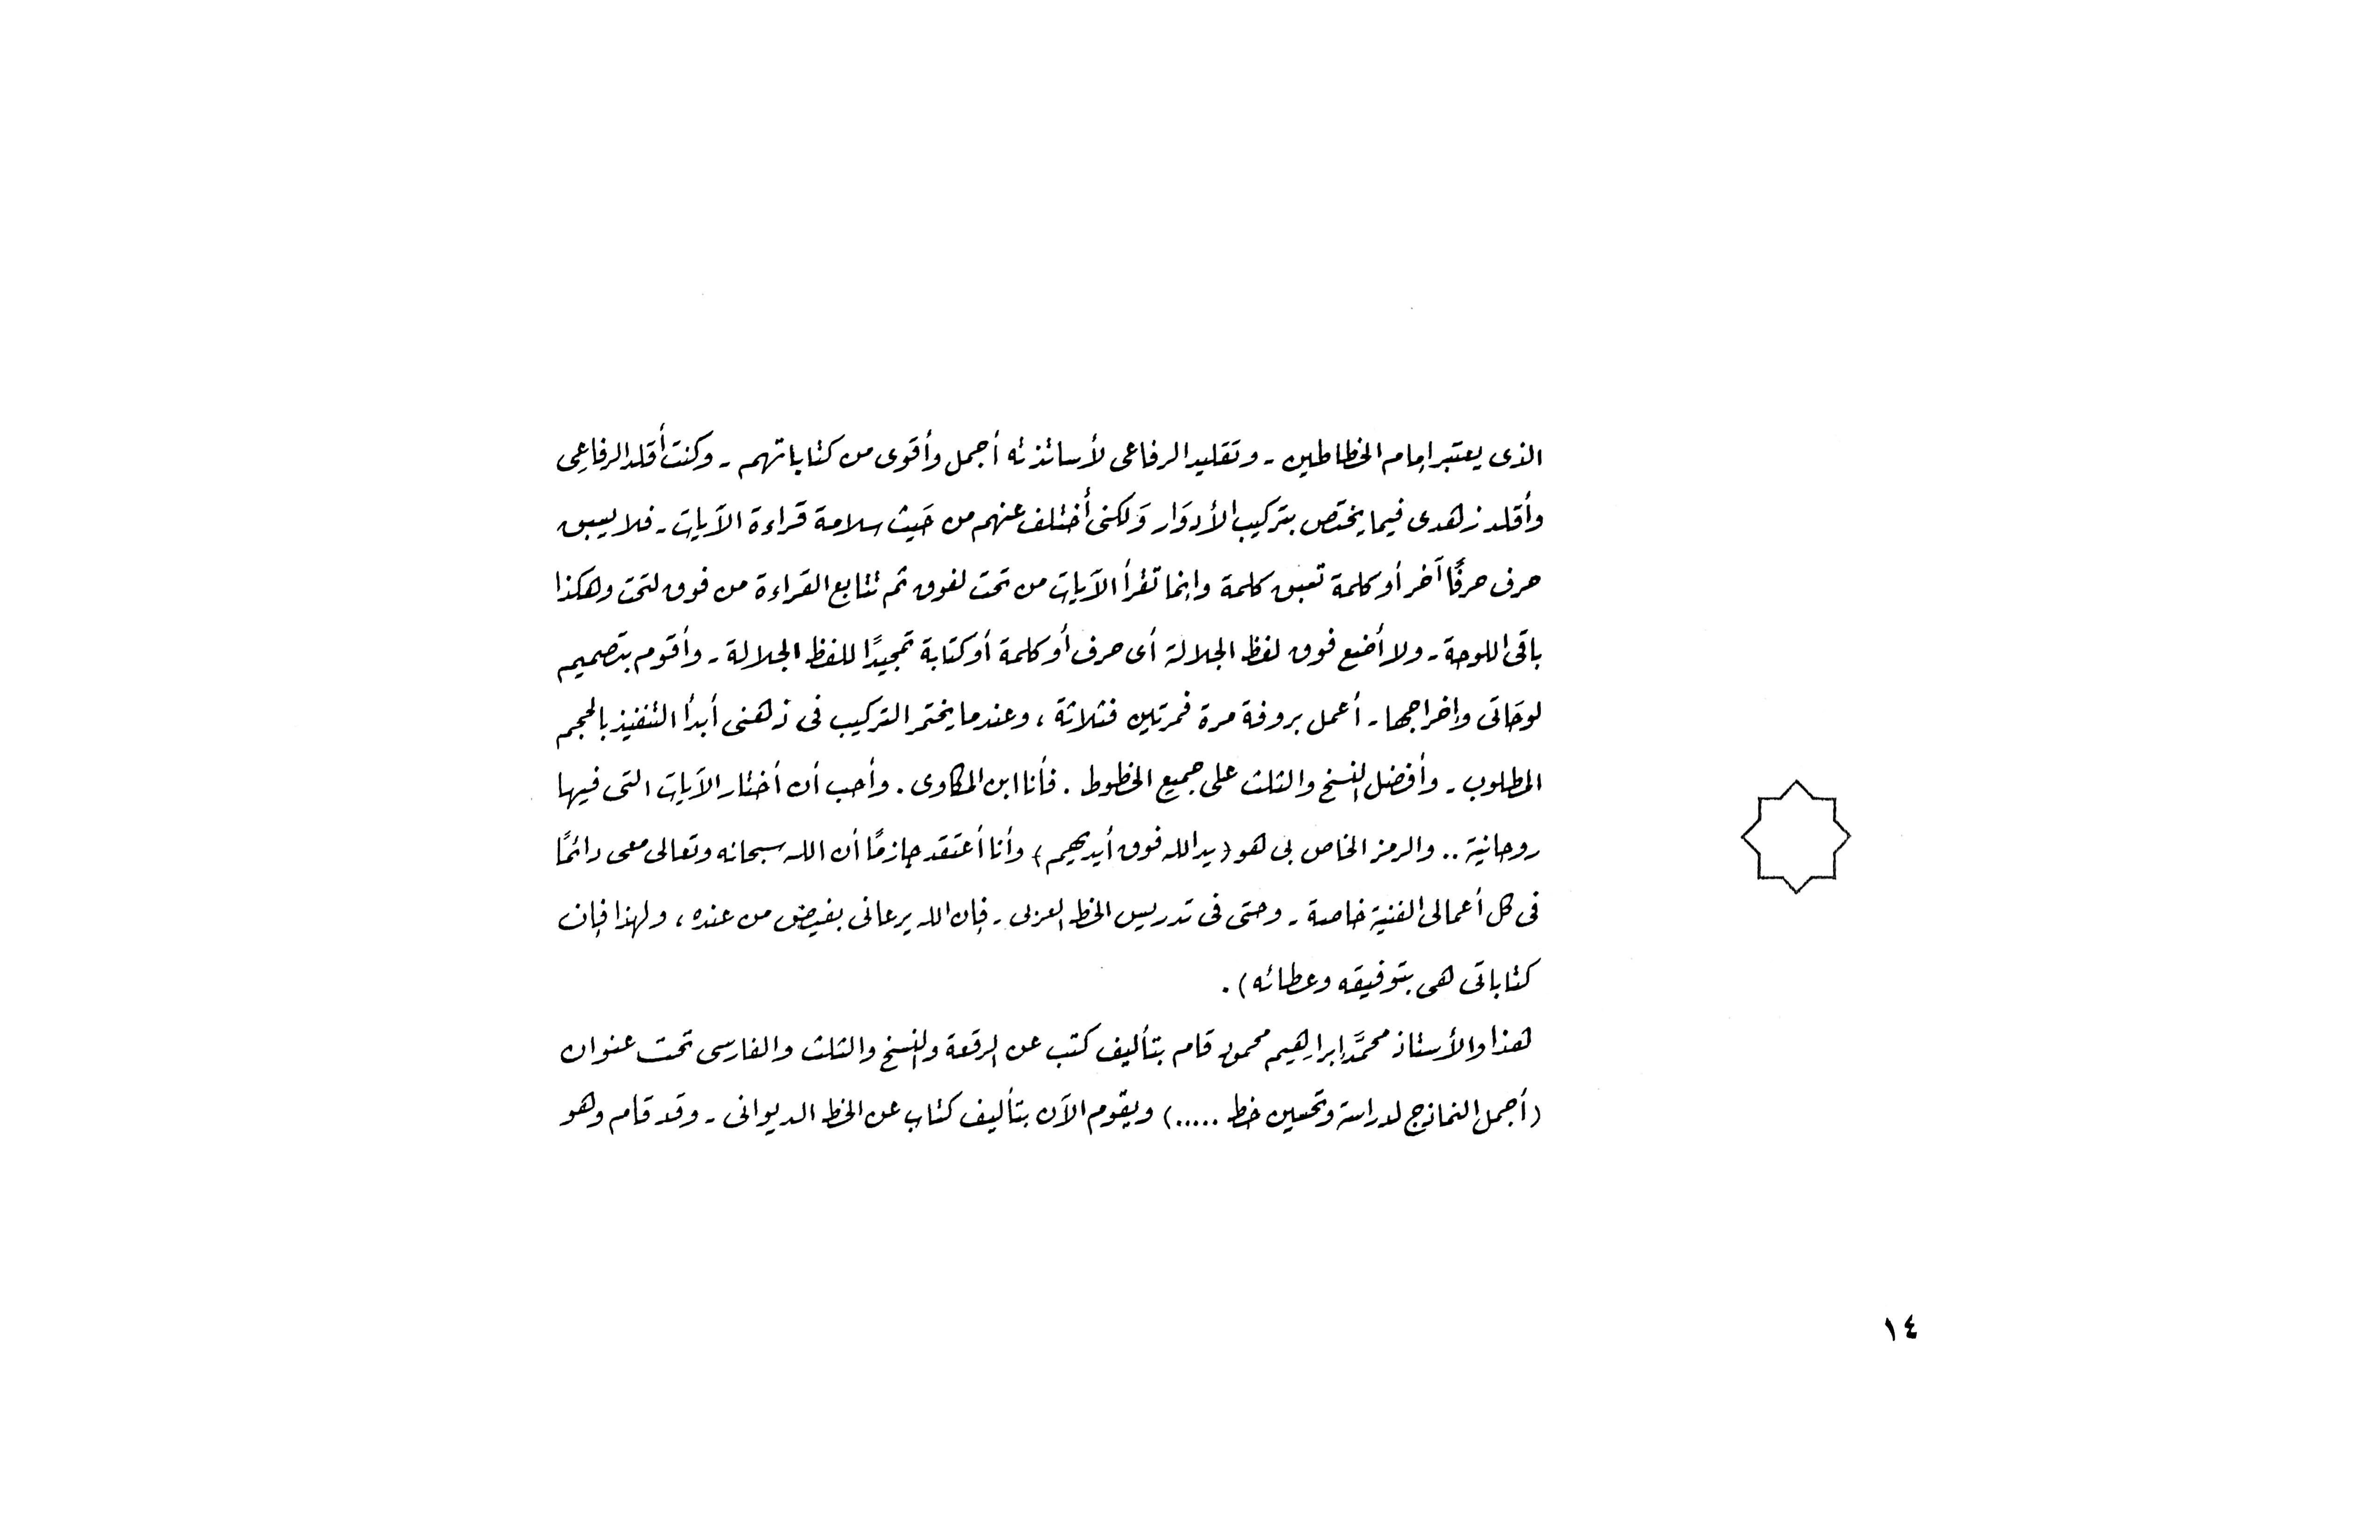 الذى يعتبر إمام الخطاطين - وتقليد الرفاعى لأساتذته أجمل وأقوى من كتاباتهم - وكنت أقلد الرفاعى
وأقلد زهدى فيما يختص بتركيب الأدوَار وَلكنى أختلف عنهم من حَيث سلامة قراءة الآيات - فلا يسبق
حرف حرفًا آخر أو كلمة تسبق كلمة وإنما تقرأ الآيات من تحت لفوق ثم تتابع القراءة من فوق لتحت وهكذا
باقى اللوحة - ولا أضع فوق لفظ الجلالة أى حرف أو كلمة أو كتابة تمجيدًا للفظ الجلالة - وأقوم بتصميم
لوحَاتى وإخراجها - أعمل بروفة مرة فمرتين فثلاثة ، وعندما يختمر التركيب فى ذهنى أبدأ التنفيذ بالحجم
المطلوب - وأفضل النسخ والثلث على جميع الخطوط . فأنا ابن المكاوى . وأحب أن أختار الآيات التى فيها
روحانية .. والرمز الخاص بى هو (يد الله فوق أيديهم) وأنا أعتقد جازمًا أن الله سبحانه وتعالى معى دائمًا
فى كل أعمالى الفنية خاصة - وحتى فى تدريس الخط العربى - فإن الله يرعانى بفيض من عنده ، ولهذا فإن
كتاباتى هى بتوفيقه وعطائه) .
هذا والأستاذ محمَّد إبراهيم محمود قام بتأليف كتب عن الرقعة والنسخ والثلث والفارسى تحت عنوان
(أجمل النماذج لدراسة وتحسين خط .....) ويقوم الآن بتأليف كتاب عن الخط الديوانى - وقد قام وهو
١٤